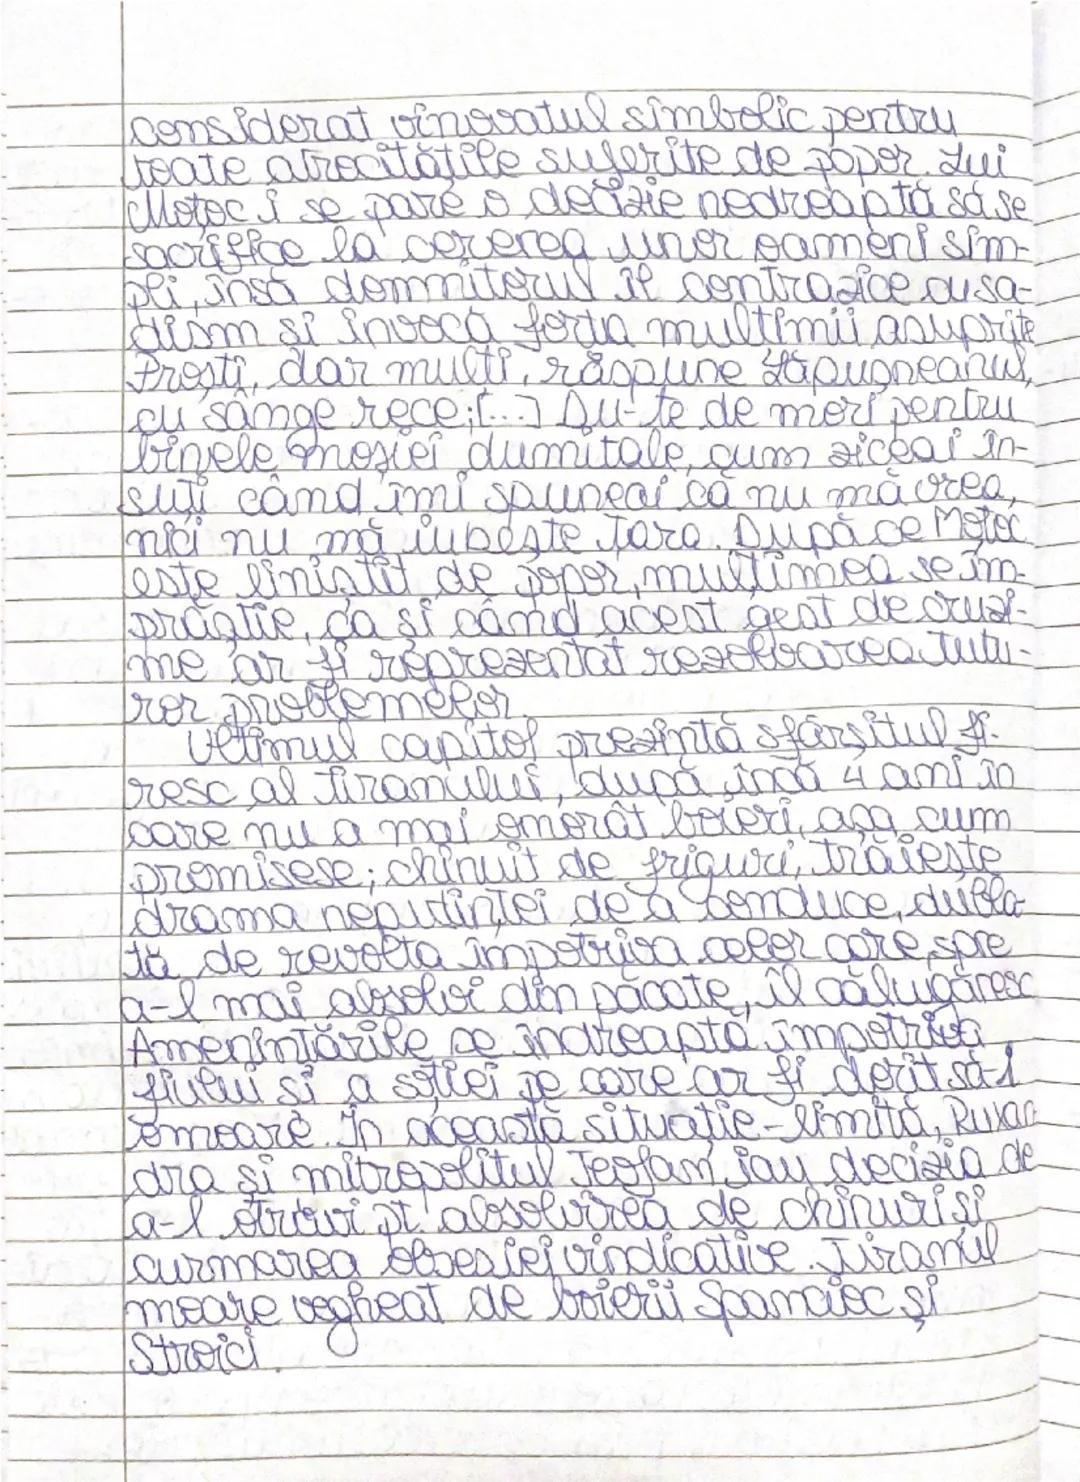 considerat vinovatul simbolic pentru
toate atrocitățile suferite de popor. Lui
Moțoc i se pare o decizie nedreaptă să se
sacrifice la cererea unor oameni sim-
pli, însă domnitorul îl contrazice cu sa-
dism si invocă forța multimii asuprite
Proști, dar mulți, răspune Lăpușneanul,
cu sânge rece; [...] Du-te de mori pentru
binele moșiei dumitale, cum ziceai în-
suți când îmi spuneai că nu mă vrea,
nici nu mă iubește țara. După ce Moțoc
este liniștit de popor, mulțimea se îm-
prăștie, ca și când acest gest de cruzi-
me ar fi reprezentat rezolvarea tutu-
ror problemelor.
Ultimul capitol prezintă sfârșitul fi-
resc al tiranului, după încă 4 ani în
care nu a mai omorât boieri, așa cum
promisese; chinuit de friguri, trăiește
drama neputinței de a conduce, dubla-
tă de revolta împotriva celor care, spre
a-l mai absolvi din păcate, îl călugăresc
Amenințările se îndreaptă împotriva
fiului si a soției pe care ar fi dorit să-l
omoare. În această situație-limită, Ruxan
dra și mitropolitul Teofan iau decizia de
a-l otrăvi pt. absolvirea de chinuri și
curmarea obsesiei vindicative. Tiranul
moare vegheat de boierii Spancioc și
Stroici.